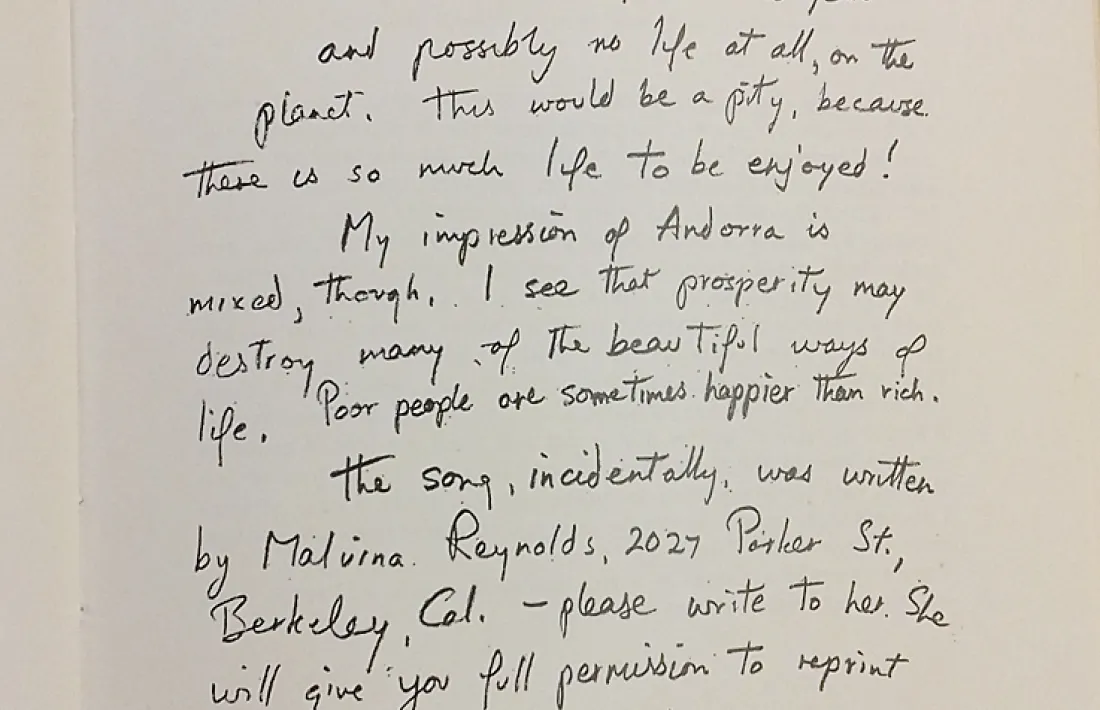 and possibly no life at all, on the
planet. This would be a pity, because
there is so much life to be enjoyed!
My impression of Andorra is
mixed, though. I see that prosperity may
destroy many of the beautiful ways of
life. Poor people are sometimes happier than rich.
The song, incidentally, was written
by Malvina Reynolds, 2027 Parker St.,
Berkeley, Cal. – please write to her. She
will give you full permission to reprint